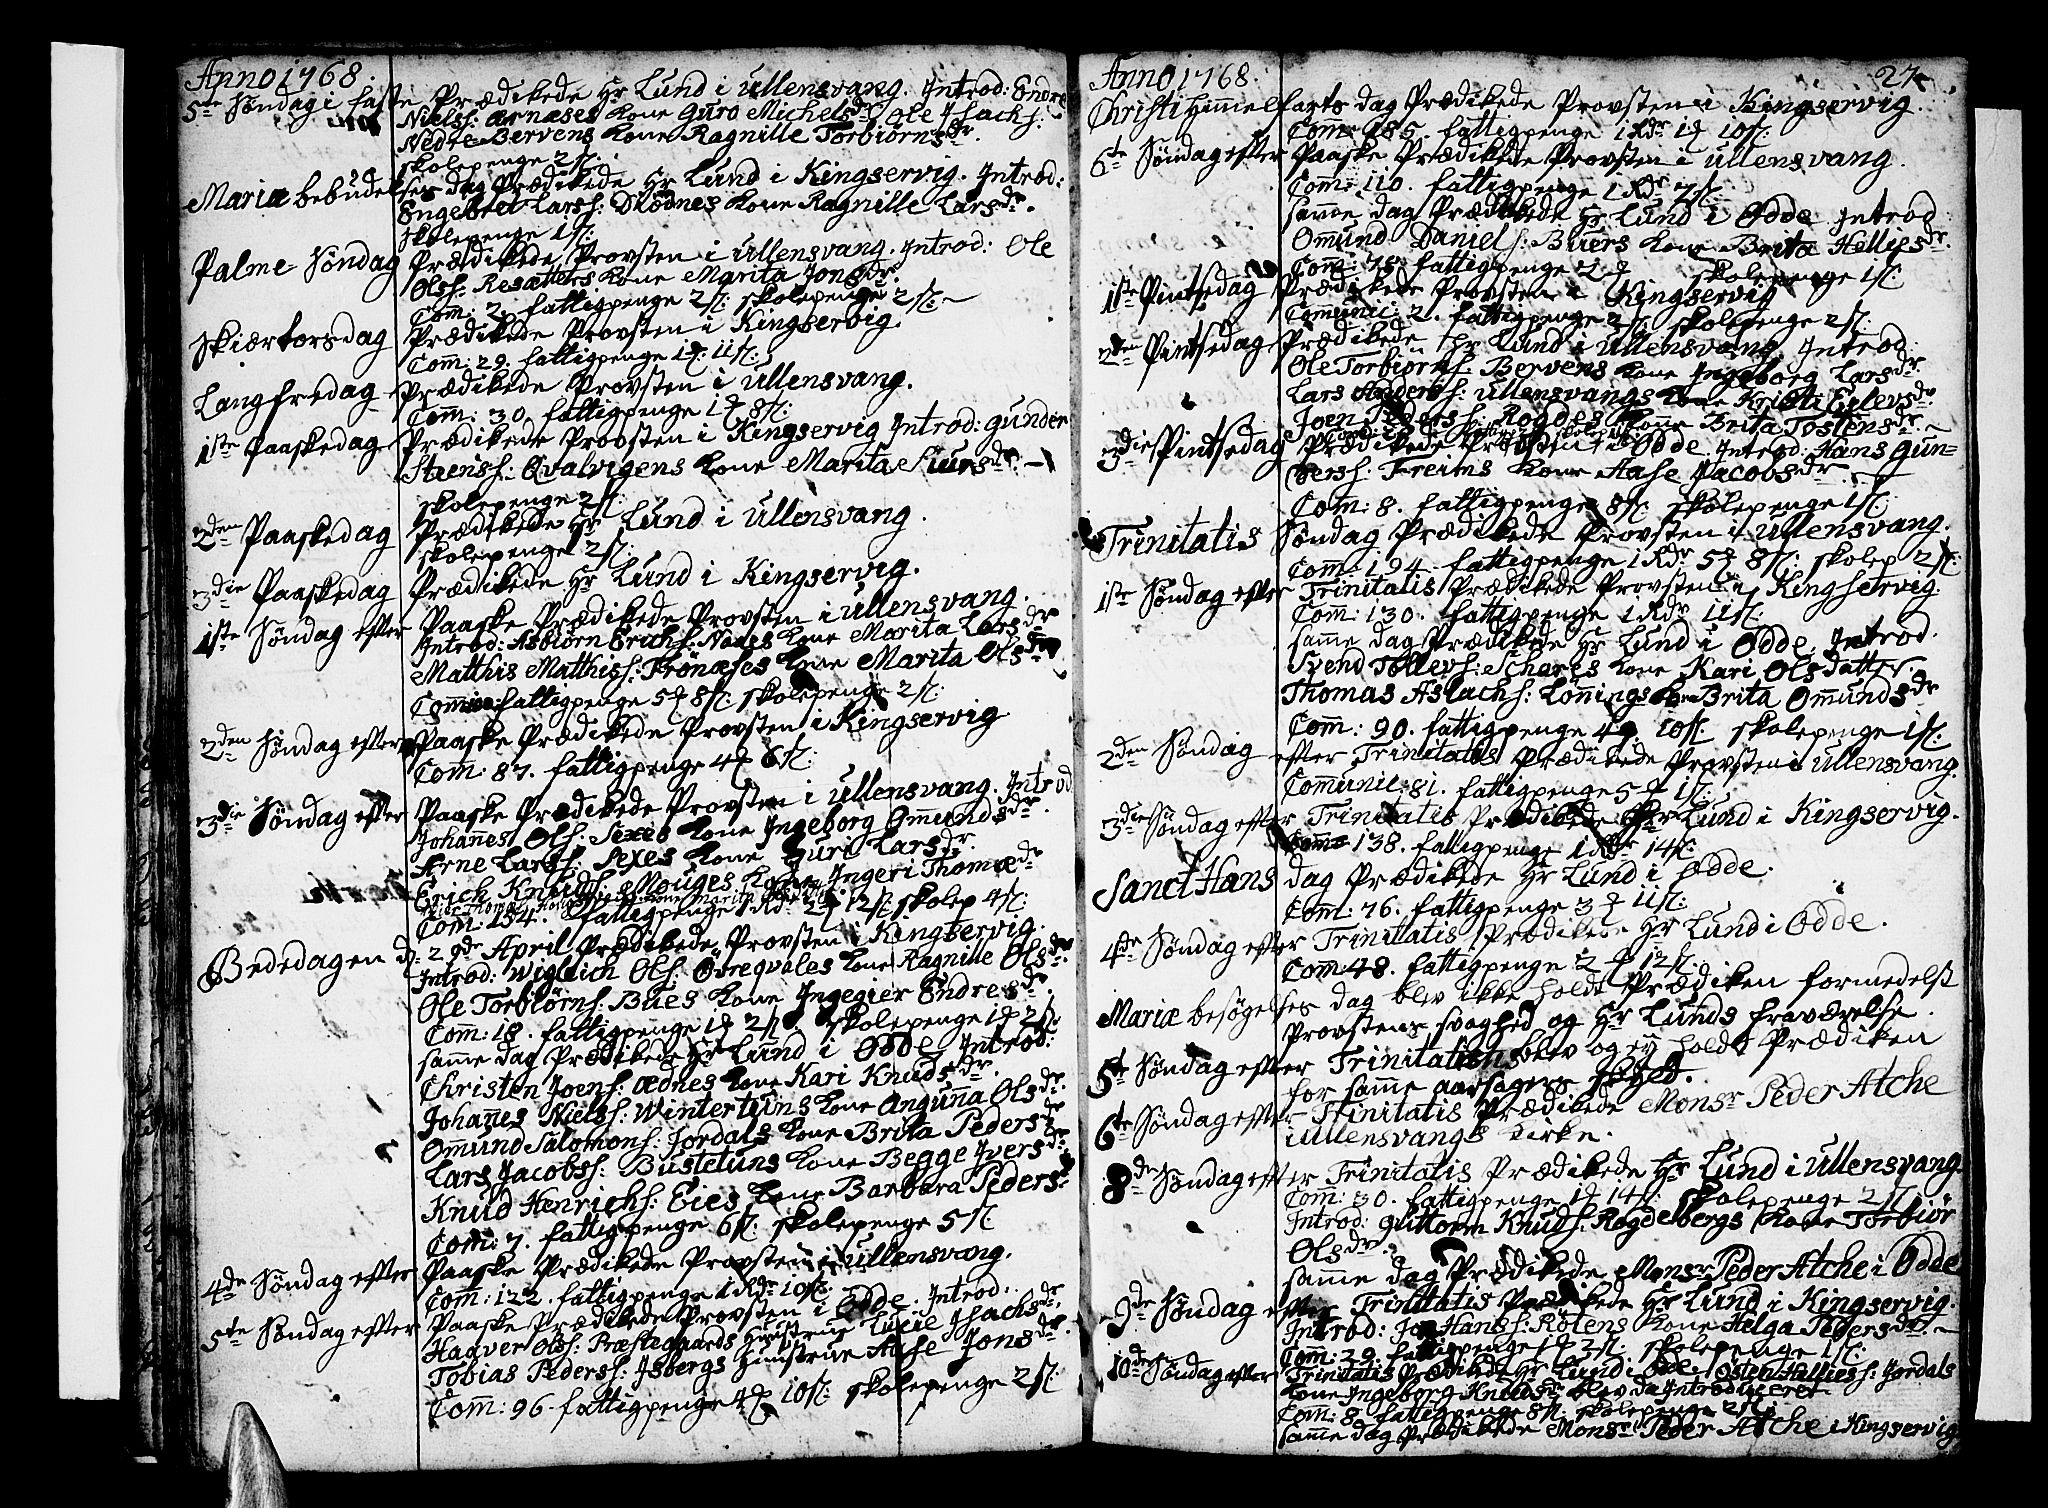 Anno 1768.
5te Søndag i faste Prædikede Hr Lund i Ullensvang. Introd: Endre
Nielss: Arnæses kone Guro Michelsdr Ole Jsachs:
Nedre Bervens kone Ragnille Torbiørnsdr.
skolepenge 2 sl:
Mariæ bebudelses dag Prædikede Hr Lund i Kingservig. Introd:
Engebret Larss: Diødnes kone Ragnille Larsdr.
skolepenge 1 sl:
Palme Søndag Prædikede Provsten i Ullensvang. Introd: Ole
Olss: Resætters kone Marita Jonsdr
Com: 2. fattigpenge 2 sl: skolepenge 2 sl:
Skiærtorsdag Prædikede Provsten i Kingservig.
Com: 29. fattigpenge 1 ꝗ 11 sl:
Langfredag Prædikede Provsten i Ullensvang.
Com: 30. fattigpenge 1 ꝗ 8 sl:
1ste Paaskedag Prædikede Provsten i Kingservig Introd: Gunder
Steinss: Qvalvigens kone Marita Siursdr.
skolepenge 2 sl:
2den Paaskedag Prædikede Hr Lund i Ullensvang.
skolepenge 2 sl:
3die Paaskedag Prædikede Hr Lund i Kingservig.
1ste Søndag efter Paaske Prædikede Provsten i Ullensvang.
Introd: Asbiørn Erichs: Naaes kone Marita Larsdr
Matthis Matthiss: Frönæses kone Marita Olsdr
fattigpenge 5 ꝗ 8 sl: skolepenge 2 sl:
2den Søndag efter Paaske Prædikede Provsten i Kingservig
Com: 87. fattigpenge 4 ꝗ 6 sl:
3die Søndag efter Paaske Prædikede Provsten i Ullensvang. Introd
Johanes Olss: Sexes kone Ingeborg Omundsdr.
Arne Larss: Sexes kone Guri Larsdr.
Erich Knuds: Mouges kone Ingeri Thomædr
Com: 154. fattigpenge 1 Rdr 2 ꝗ 12 sl: skolep 4 sl:
Bededagen d: 29de April Prædikede Provsten i Kingservig.
Introd: Wiglich Olss: Øvreqvales kone Ragnille Olsdr.
Ole Torbiørns: Bues kone Ingegier Endresdr.
Com: 18. fattigpenge 1 ꝗ 2 sl. skolepenge 1 ꝗ 2 sl
samme dag Prædikede Hr Lund i Odde Introd:
Christen Joens: Ædnes kone Kari Knudsdr.
Johañes Niels: Wintertuns kone Anguña Olsdr.
Omund Salomons: Jordals kone Brita Pedersdr
Lars Jacobss: Bustetuns kone Begge Iversdr
Knud Henrichs: Eies kone Barbara Peders
Com: 7. fattigpenge 6 sl: skolepenge 5 sl
4de Søndag efter Paaske Prædikede Provsten i Ullensvang.
Com: 122. fattigpenge 1 Rdr 10 sl:
5te Søndag efter Paaske Prædikede Provsten i Odde. Introd:
Hagver Olss: Præstegaards Hustrue Lucie Jsachsdr,
Tobias Pederss: Isbergs Hustrue Aase Jonsdr.
Com: 96. fattigpenge 4 ꝗ 10 sl: skolepenge 2 sl:
Anno 1768. 27
Christi Himmelfarts dag Prædikede Provsten i Kingservig.
Com: 185. fattigpenge 1 Rdr 1 ꝗ 10 sl:
6te Søndag efter Paaske Prædikede Provsten i Ullensvang.
Com: 110. fattigpenge 1 Rdr 7 sl:
samme dag Prædikede Hr Lund i Odde Introd
Omund Daniels: Buers kone Brita Helliesdr.
Com: 78. fattigpenge 2 ꝗ skolepenge 1 sl:
1ste Pintsedag Prædikede Provsten i Kingservig
Comunic: 2. fattigpenge 2 sl skolepenge 2 sl.
2den Pintsedag Prædikede Hr Lund i Ullensvang. Introd:
Ole Torbiørns: Bervens kone Ingeborg Larsdr.
Lars Anderss: Ullensvangs kone Kristi Eilevsdr
Joen Peders: Rogdes kone Brita Tostensdr.
3die Pintsedag Prædikede Provsten i Odde. Introd: Hans Gun=
ders: Freims kone Aase Jacobsdr
Com: 8. fattigpenge 8 sl skolepenge 1 sl:
Trinitatis Søndag Prædikede Provsten i Ullensvang.
Com: 194. fattigpenge 1 Rdr 5 ꝗ 8 sl: skolep 2 sl:
1ste Søndag efter Trinitatis Prædikede Provsten i Kingservig.
Com: 130. fattigpenge 1 Rdr 11 sl:
samme dag Prædikede Hr Lund i Odde. Introd.
Svend Tollevs: Schares kone Kari Olsdatter.
Thomas Aslachs: Löñings kone Brita Omundsdr
Com: 90. fattigpenge 4 ꝗ. 10 sl: skolepenge 1 sl:
2den Søndag efter Trinitatis Prædikede Provsten i Ullensvang.
Comunic: 81. fattigpenge 5 ꝗ 1 sl:
3die Søndag efter Trinitatis Prædikede Hr Lund i Kingservig.
Com: 138. fattigpenge 1 Rdr 14 sl:
Sanct Hans dag Prædikede Hr Lund i Odde.
Com: 76. fattigpenge 3 ꝗ 11 sl:
4de Søndag efter Trinitatis Prædikede Hr Lund i Odde.
Com: 48. fattigpenge 2 ꝗ 12 sl:
Mariæ besøgelses dag blev ikke holdt Prædiken formedelst
Provstens svaghed og Hr Lunds fraværelse.
5te Søndag efter Trinitatis blev og ey holdt Prædiken
for samme aarsagers skyld.
6te Søndag efter Trinitatis Prædikede Monsr Peder Atche
i Ullensvangs kirke.
8de Søndag efter Trinitatis Prædikede Hr Lund i Ullensvang.
Com: 30. fattigpenge 1 ꝗ 14 sl: skolepenge 2 sl:
Introd: Guttorm Knuds: Rogdebergs kone Torbiør
Olsdr.
samme dag Prædikede Monsr Peder Atche i Odde
9de Søndag efter Trinitatis Prædikede Hr Lund i Kingservig.
Introd: Jon Hanss: Rötens kone Helga Pedersdr.
Com: 29. fattigpenge 1 ꝗ 2 sl: skolepenge 1 sl:
10de Søndag efter Trinitatis Prædikede Hr Lund i Odde. Østen Hellies: Jordals
kone Ingeborg Knudsdr blev da Introduceret
Com: 8. fattigpenge 8 sl: skolepenge 2 sl:
samme dag Prædikede Monsr Peder Atche i Kingservig